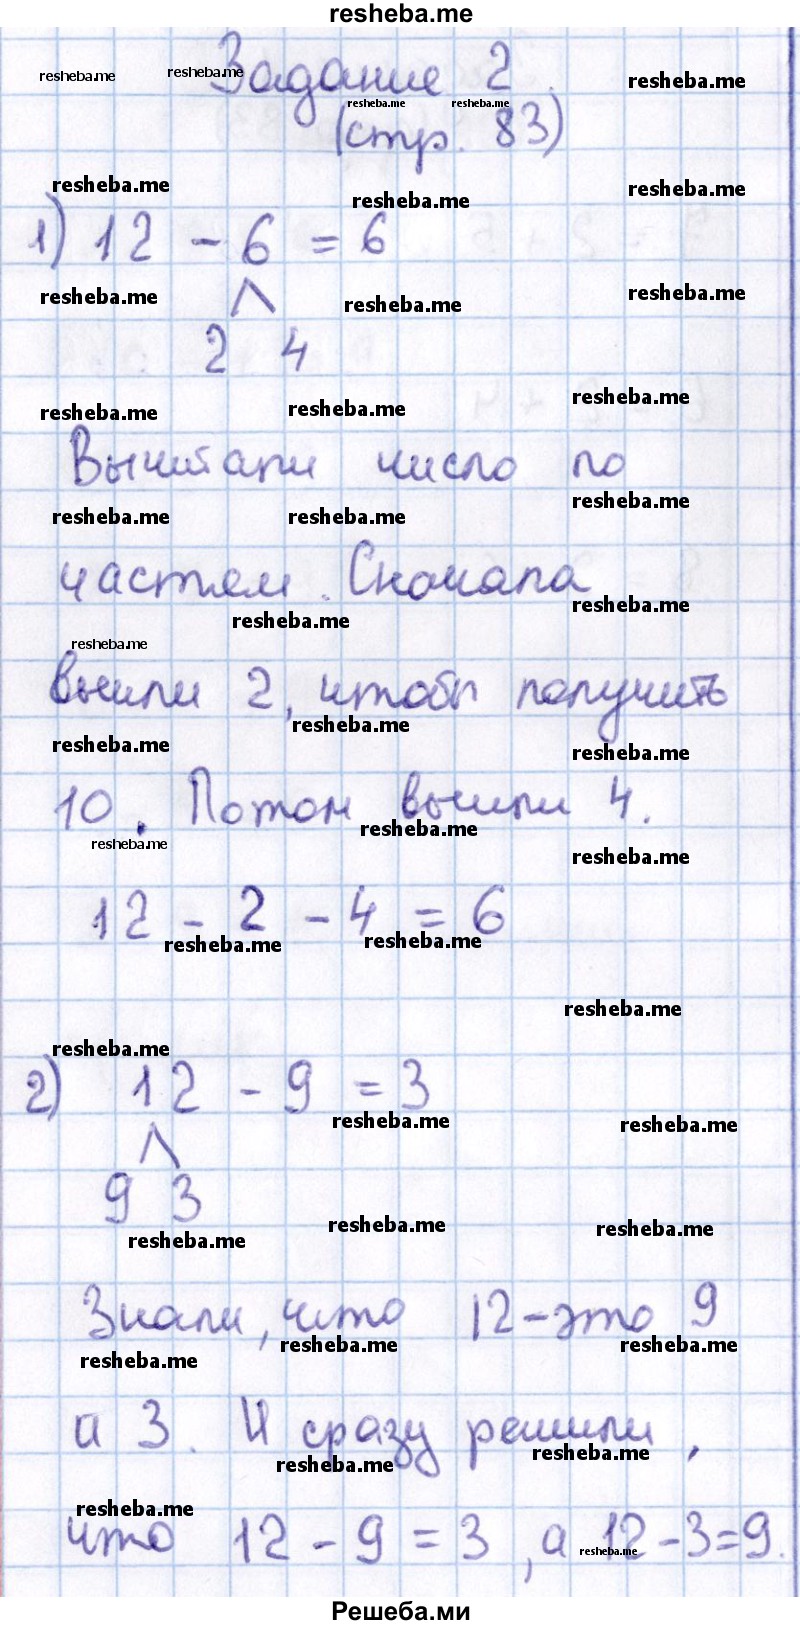 resheba.me
Задание 2.
(стр. 83)
1) 12 - 6 = 6
2 4
Вычитали число по
частям. Сначала
вычли 2, чтобы получить
10. Потом вычли 4.
12 - 2 - 4 = 6
2) 12 - 9 = 3
9 3
Знали, что 12-это 9
и 3. И сразу решили,
что 12 - 9 = 3, а 12-3=9.
Решеба.ми